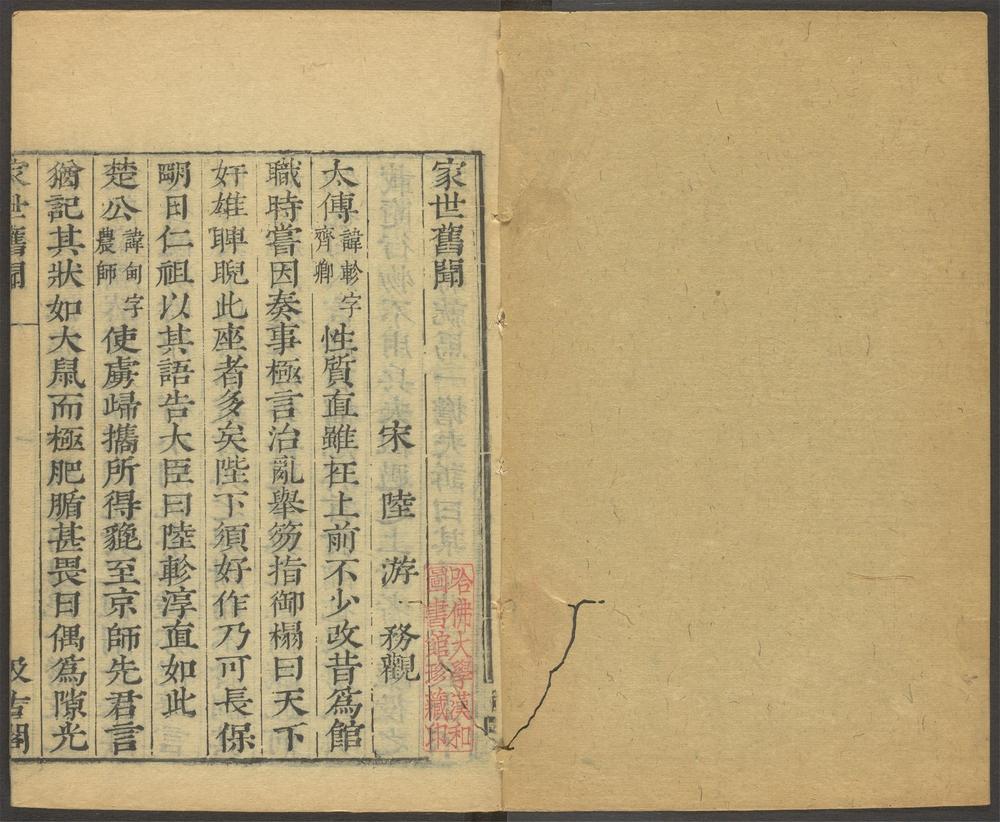 家世舊聞
宋 陸 游 務觀
太傅諱軫字齊卿性質直雖在上前不少改昔為館
職時嘗因奏事極言治亂舉笏指御榻曰天下
奸雄睥睨此座者多矣陛下須好作乃可長保
明日仁祖以其語告大臣曰陸軫淳直如此
楚公諱佃字農師使虜歸攜所得貔至京師先君言
猶記其狀如大鼠而極肥腯甚畏日偶為隙光
家世舊聞
汲古閣
哈佛大學漢和
圖書館珍藏印